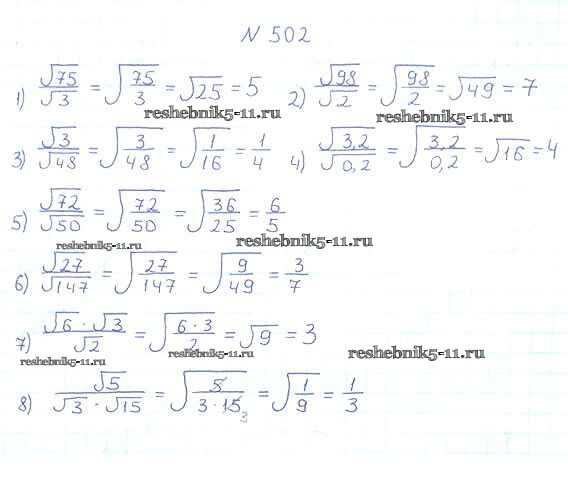 N 502
1) √75/√3 = √(75/3) = √25 = 5 2) √98/√2 = √(98/2) = √49 = 7
reshebnik5-11.ru reshebnik5-11.ru
3) √3/√48 = √(3/48) = √(1/16) = 1/4 4) √3,2/√0,2 = √(3,2/0,2) = √16 = 4
5) √72/√50 = √(72/50) = √(36/25) = 6/5
reshebnik5-11.ru reshebnik5-11.ru
6) √27/√147 = √(27/147) = √(9/49) = 3/7
7) √6 · √3/√2 = √(6·3/2) = √9 = 3
reshebnik5-11.ru reshebnik5-11.ru reshebnik5-11.ru
8) √5/(√3 · √15) = √(5/(3·15)) = √(1/9) = 1/3
3